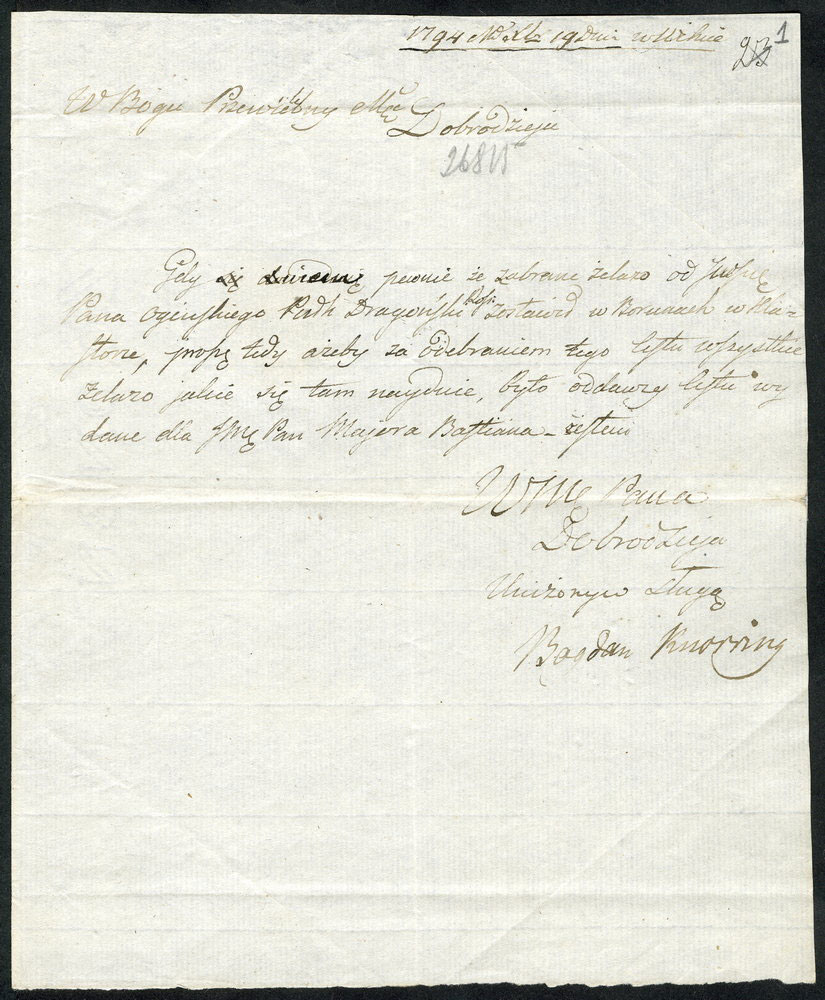 1794 9dnia w Wilnie
23 1
W Bogu Przewielebny Mći Dobrodzieju
26815
Gdy się pewnie że zabrane żelazo od
Pana Ogińskiego Pułk Dragoński zostawił w Borunach w Kla-
storze, proszę tedy ażeby za odebraniem tego listu wszystkie
żelazo jakie się tam nayduie, było oddawcy listu wy
dane dla JMę Pan Majora Bastiana - iestem
WMę Pana
Dobrodzieja
Uniżonym sługą
Bogdan Knorring